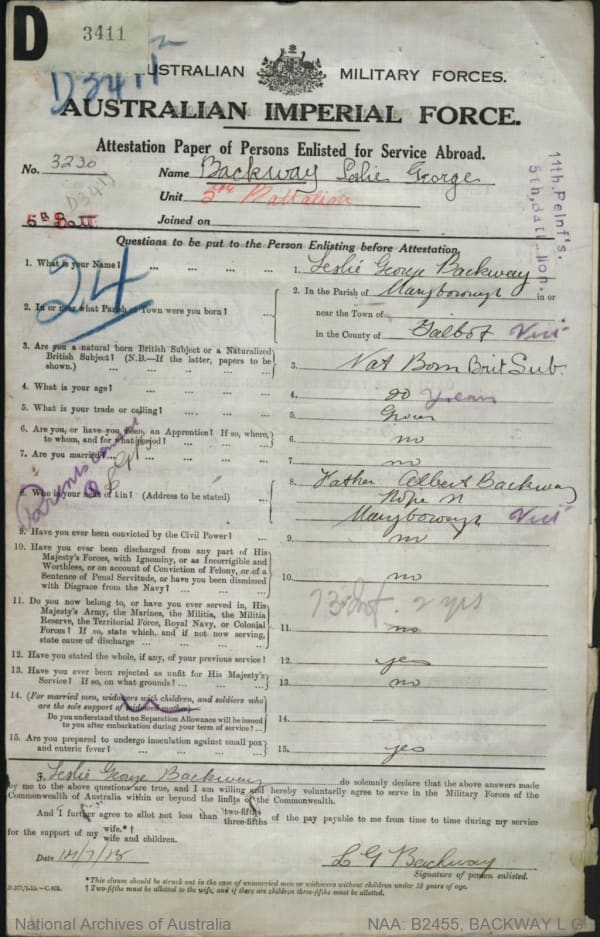 D
3411
D3411
AUSTRALIAN MILITARY FORCES.
AUSTRALIAN IMPERIAL FORCE.
Attestation Paper of Persons Enlisted for Service Abroad.
No. 3230 Name Backway Leslie George
D3411
Unit 5th Battalion
5th Batt. Joined on
11th Reinf's.
5th Battalion.
Questions to be put to the Person Enlisting before Attestation.
24
1. What is your Name? ... ... ... ... 1. Leslie George Backway
2. In or near what Parish or Town were you born? ... 2. In the Parish of Maryborough in or
near the Town of
in the County of Talbot Vict
3. Are you a natural born British Subject or a Naturalized
British Subject? (N.B.—If the latter, papers to be
shown.) ... ... ... ... 3. Nat Born Brit Sub.
4. What is your age? ... ... ... ... 4. 20 years
5. What is your trade or calling? ... ... ... 5. Grocer
6. Are you, or have you been, an Apprentice? If so, where,
to whom, and for what period? ... ... ... 6. no
7. Are you married? ... ... ... ... 7. no
Parents consent
8. Who is your next of kin? (Address to be stated) ... 8. Father Albert Backway
Nope
Maryborough Vict
9. Have you ever been convicted by the Civil Power? ... 9. no
10. Have you ever been discharged from any part of His
Majesty's Forces, with Ignominy, or as Incorrigible and
Worthless, or on account of Conviction of Felony, or of a
Sentence of Penal Servitude, or have you been dismissed
with Disgrace from the Navy? ... ... ... 10. no
11. Do you now belong to, or have you ever served in, His
Majesty's Army, the Marines, the Militia, the Militia
Reserve, the Territorial Force, Royal Navy, or Colonial
Forces? If so, state which, and if not now serving,
state cause of discharge ... ... ... 11. no
73 Inf. 2 yrs
12. Have you stated the whole, if any, of your previous service? 12. yes
13. Have you ever been rejected as unfit for His Majesty's
Service? If so, on what grounds? ... ... 13. no
14. (For married men, widowers with children, and soldiers who
are the sole support of widowed mother)
Do you understand that no Separation Allowance will be issued
to you after embarkation during your term of service? ... 14.
15. Are you prepared to undergo inoculation against small pox
and enteric fever? ... ... ... ... 15. yes
I, Leslie George Backway do solemnly declare that the above answers made
by me to the above questions are true, and I am willing and hereby voluntarily agree to serve in the Military Forces of the
Commonwealth of Australia within or beyond the limits of the Commonwealth.
And I further agree to allot not less than two-fifths three-fifths of the pay payable to me from time to time during my service
for the support of my wife.*† wife and children.
Date 14/7/15 L G Backway
Signature of person enlisted.
* This clause should be struck out in the case of unmarried men or widowers without children under 18 years of age.
† Two-fifths must be allotted to the wife, and if there are children three-fifths must be allotted.
National Archives of Australia NAA: B2455, BACKWAY L G